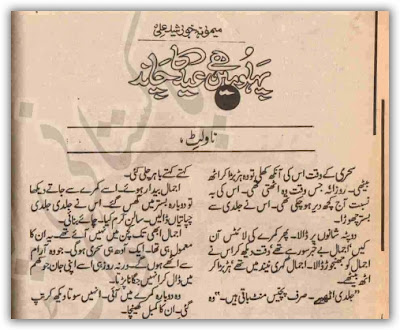 میمونہ خورشید علی
پہلو میں ہے عید کا چاند
ناولٹ،
سحری کے وقت اس کی آنکھ کھلی تو وہ ہڑبڑا کر اٹھ
بیٹھی۔ روزانہ جس وقت وہ اٹھتی تھی۔ اس کی بہ
نسبت آج کچھ دیر ہو چکی تھی۔ اس نے جلدی سے
بستر چھوڑا۔
دوپٹہ شانوں پر ڈالا۔ پھر کمرے کی لائٹس آن
کیں "اجمل بے خبر سو رہے تھے وقت دیکھ کر اس نے
اجمل کو جھنجھوڑ ڈالا۔ اجمل گہری نیند میں تھے ہڑبڑا کر
اٹھ بیٹھے۔
"جلدی اٹھیے۔ صرف پچیس منٹ باقی ہیں۔" وہ
کہتے کہتے باہر چلی گئی۔
اجمل بیدار ہوئے۔ اسے کمرے سے جاتے دیکھا
تو دوبارہ بستر میں گھس گئے۔ اس نے جلدی جلدی
چپاتیاں ڈالیں۔ سالن گرم کیا۔ چائے بنائی۔
اجمل ابھی تک کچن میں نہیں آئے تھے۔ یہ ان کا
معمول ہی تھا۔ ایک آدھ ہی سحری ہو گی۔ جو وہ آرام
سے اٹھے ہوں گے۔ ورنہ روز ہی اسے اپنی جان جوکھم
میں ڈال کر انہیں جگانا پڑتا۔
وہ دوبارہ کمرے میں آئی۔ انہیں سوتا دیکھ کر تپ
گئی۔ ان کا کمبل کھینچا۔